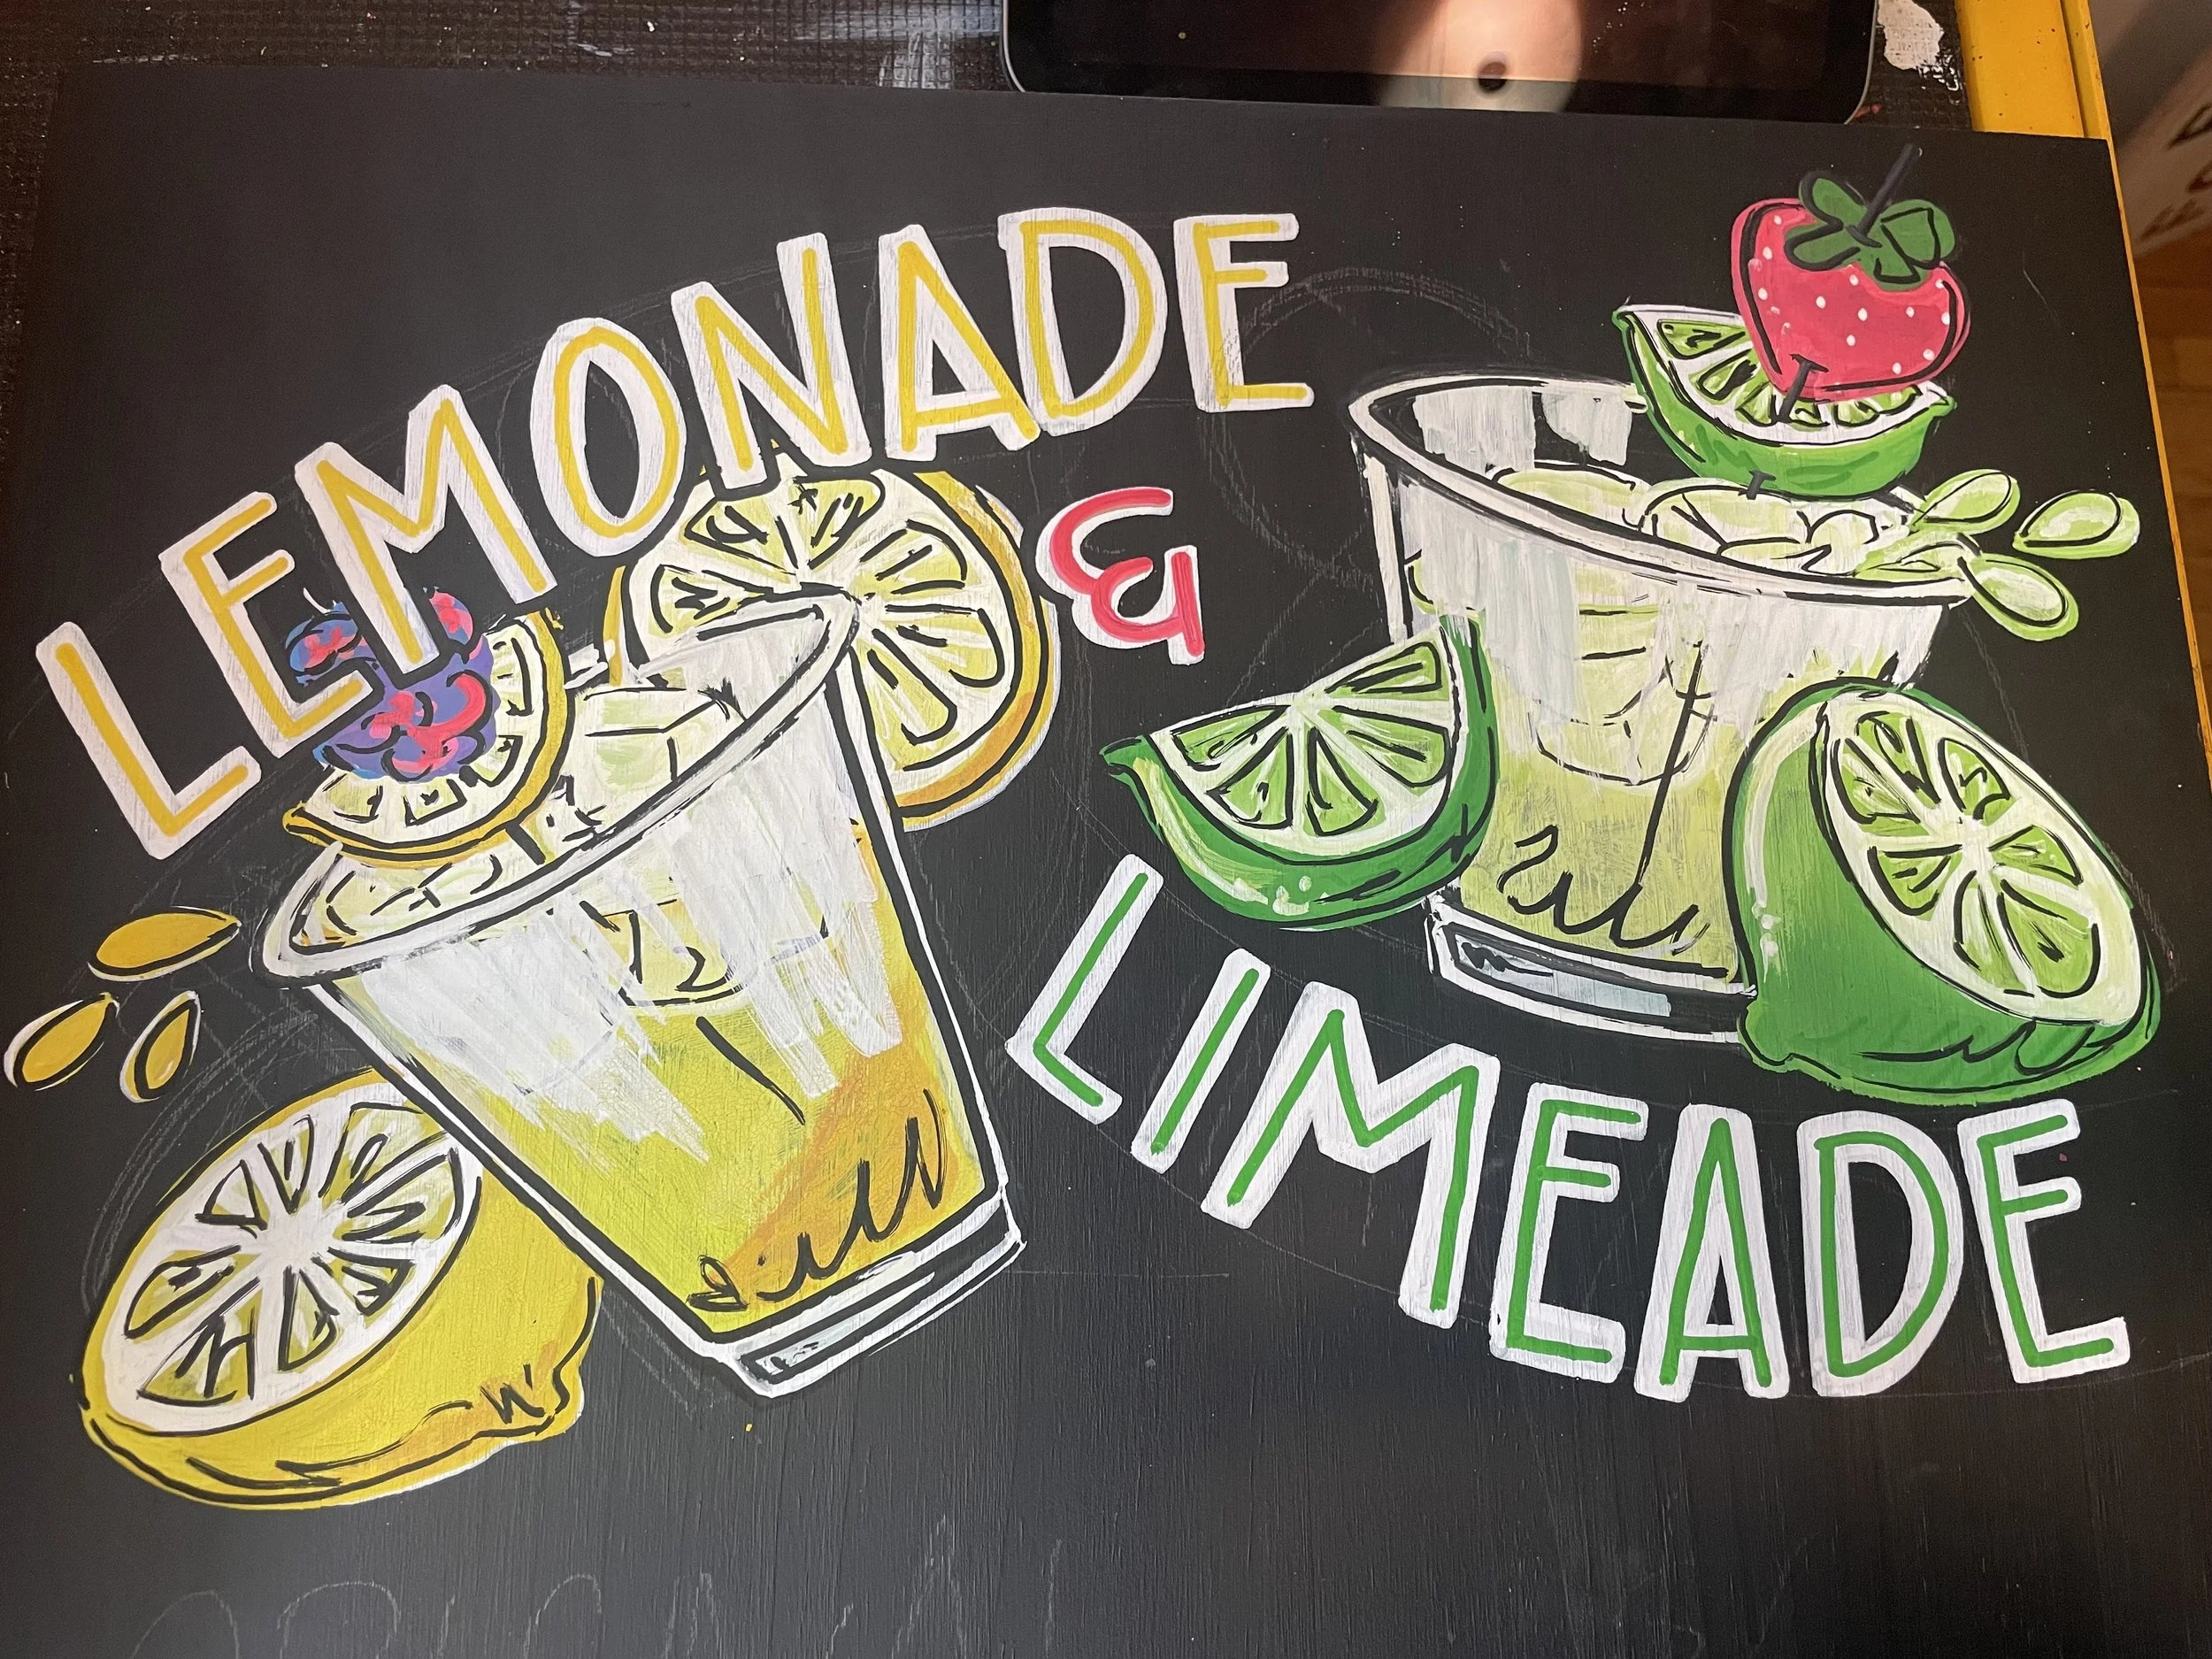 LEMONADE
&
LIMEADE